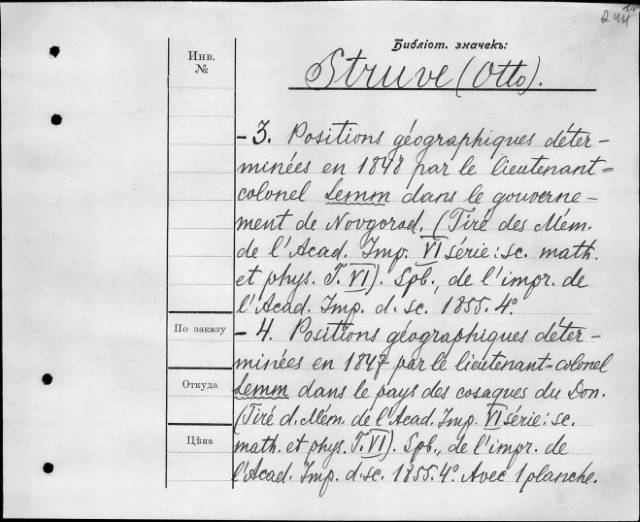 244
Библіот. значекъ:
Инв.
№
Struve (Otto).
- 3. Positions géographiques déter-
minées en 1848 par le lieutenant=
colonel Lemm dans le gouverne-
ment de Novgorod. (Tiré des Mém.
de l'Acad. Imp. VI série: sc. math.
et phys. T. VI). Spb., de l'impr. de
l'Acad. Imp. d. sc. 1855. 4°.
По заказу
- 4. Positions géographiques déter-
minées en 1847 par le lieutenant-colonel
Откуда
Lemm dans le pays des cosaques du Don.
(Tiré d. Mém. de l'Acad. Imp. VI série: sc.
Цѣна
math. et phys. T. VI). Spb., de l'impr. de
l'Acad. Imp. d. sc. 1855. 4°. Avec 1 planche.